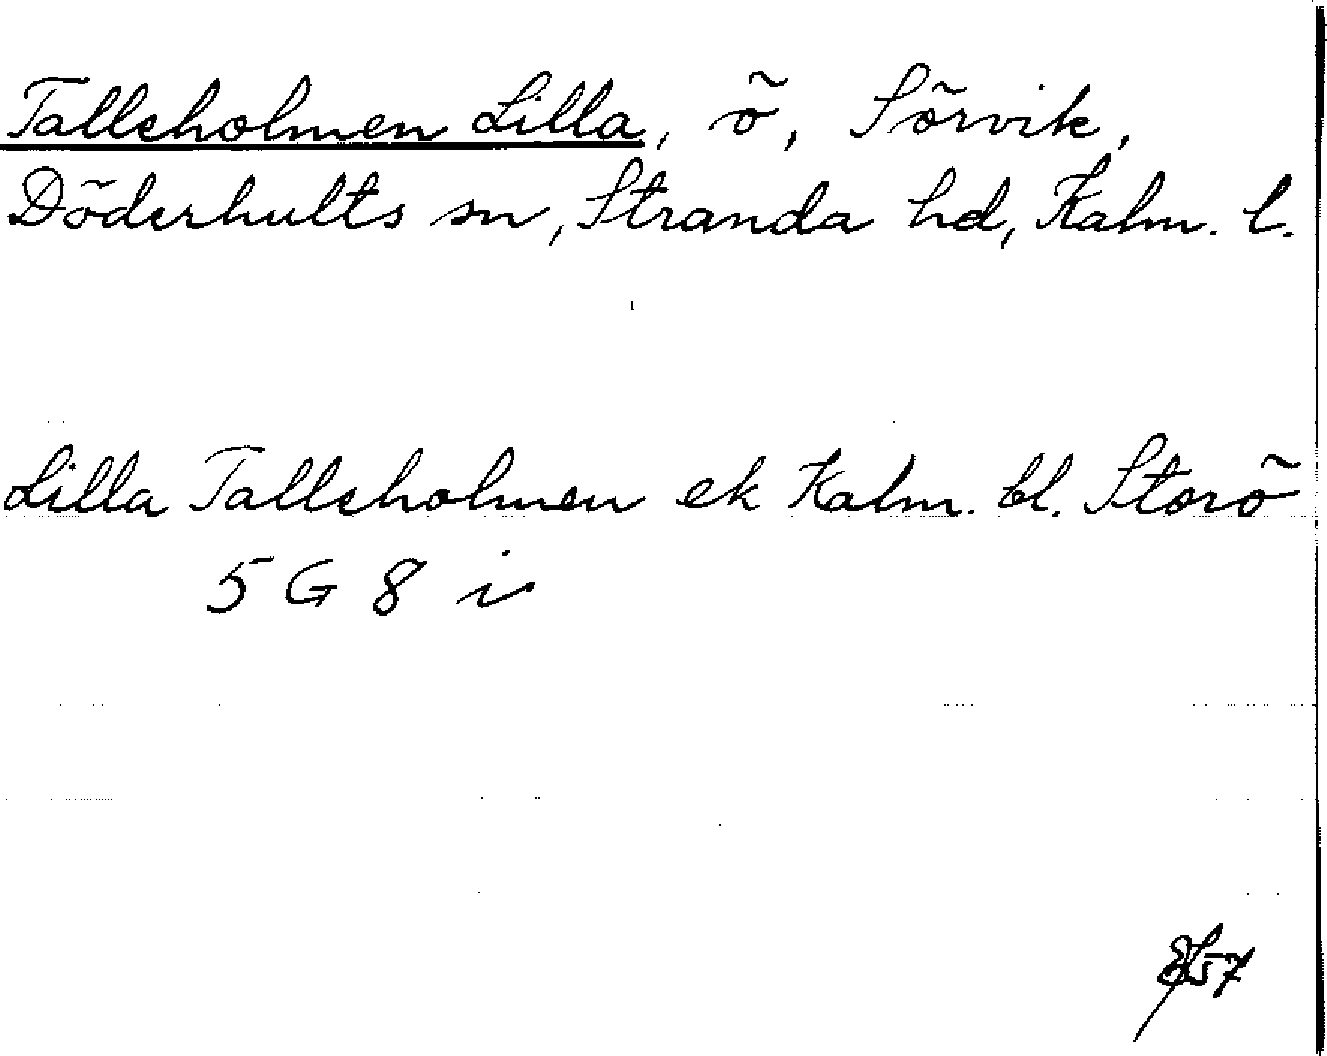 Talleholmen Lilla, ö, Sörvik,
Döderhults sn, Stranda hd, Kalm. l.
Lilla Talleholmen ek Kalm. bl. Storö
5 G 8 i
57